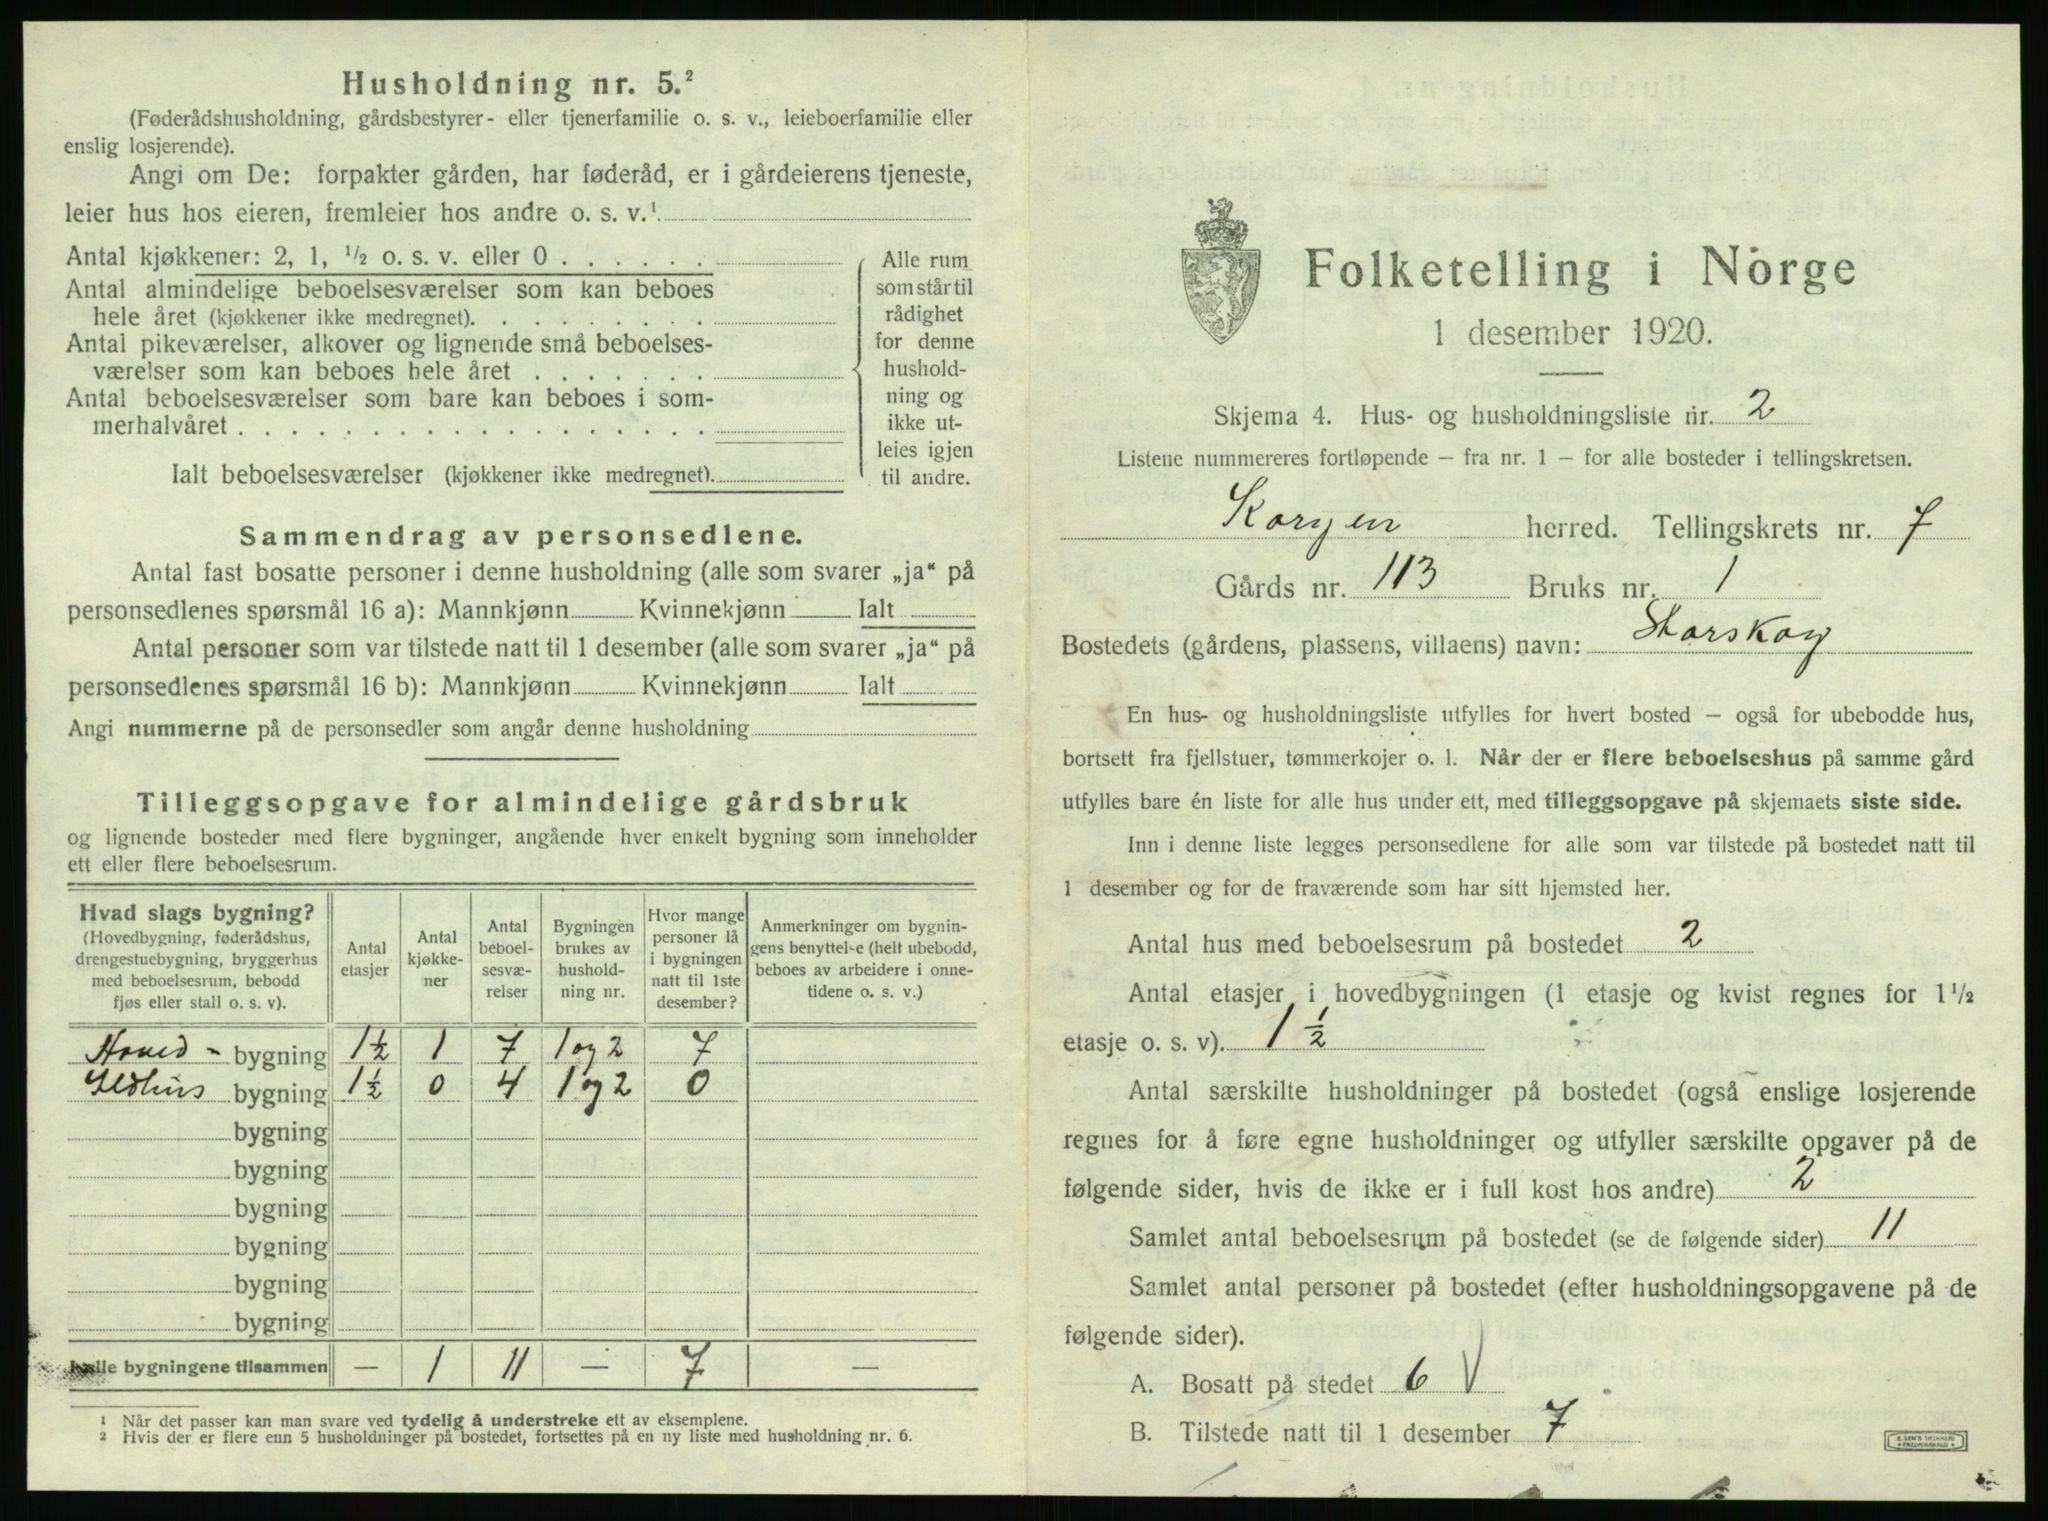 Husholdning nr. 5.²
(Føderådshusholdning, gårdsbestyrer- eller tjenerfamilie o. s. v., leieboerfamilie eller
enslig losjerende).
Angi om De: forpakter gården, har føderåd, er i gårdeierens tjeneste,
leier hus hos eieren, fremleier hos andre o. s. v.¹
Antal kjøkkener: 2, 1, ½ o. s. v. eller 0 . . . . . .
Antal almindelige beboelsesværelser som kan beboes
hele året (kjøkkener ikke medregnet). . . . . . . . .
Antal pikeværelser, alkover og lignende små beboelses-
værelser som kan beboes hele året . . . . . . .
Antal beboelsesværelser som bare kan beboes i som-
merhalvåret . . . . . . . . . . . . . . . . . .
Ialt beboelsesværelser (kjøkkener ikke medregnet).
Alle rum
som står til
rådighet
for denne
hushold-
ning og
ikke ut-
leies igjen
til andre.
Sammendrag av personsedlene.
Antal fast bosatte personer i denne husholdning (alle som svarer „ja“ på
personsedlenes spørsmål 16 a): Mannkjønn Kvinnekjønn Ialt
Antal personer som var tilstede natt til 1 desember (alle som svarer „ja“ på
personsedlenes spørsmål 16 b): Mannkjønn Kvinnekjønn Ialt
Angi nummerne på de personsedler som angår denne husholdning
Tilleggsopgave for almindelige gårdsbruk
og lignende bosteder med flere bygninger, angående hver enkelt bygning som inneholder
ett eller flere beboelsesrum.
Hvad slags bygning?
(Hovedbygning, føderådshus,
drengestuebygning, bryggerhus
med beboelsesrum, bebodd
fjøs eller stall o. s. v).
Antal
etasjer
Antal
kjøkke-
ner
Antal
beboel-
sesvæ-
relser
Bygningen
brukes av
hushold-
ning nr.
Hvor mange
personer lå
i bygningen
natt til 1ste
desember?
Anmerkninger om bygnin-
gens benyttelse (helt ubebodd,
beboes av arbeidere i onne-
tidene o. s. v.)
Hoved - bygning 1½ 1 7 1 og 2 7
Ildhus bygning 1½ 0 4 1 og 2 0
bygning
bygning
bygning
bygning
bygning
bygning
I alle bygningene tilsammen — 1 11 — 7 —
¹ Når det passer kan man svare ved tydelig å understreke ett av eksemplene.
² Hvis der er flere enn 5 husholdninger på bostedet, fortsettes på en ny liste med husholdning nr. 6.
Folketelling i Norge
1 desember 1920.
Skjema 4. Hus- og husholdningsliste nr. 2
Listene nummereres fortløpende — fra nr. 1 — for alle bosteder i tellingskretsen.
Korgen herred. Tellingskrets nr. 7
Gårds nr. 113 Bruks nr. 1
Bostedets (gårdens, plassens, villaens) navn: Storskog
En hus- og husholdningsliste utfylles for hvert bosted — også for ubebodde hus,
bortsett fra fjellstuer, tømmerkojer o. l. Når der er flere beboelseshus på samme gård
utfylles bare én liste for alle hus under ett, med tilleggsopgave på skjemaets siste side.
Inn i denne liste legges personsedlene for alle som var tilstede på bostedet natt til
1 desember og for de fraværende som har sitt hjemsted her.
Antal hus med beboelsesrum på bostedet 2
Antal etasjer i hovedbygningen (1 etasje og kvist regnes for 1½
etasje o. s. v). 1½
Antal særskilte husholdninger på bostedet (også enslige losjerende
regnes for å føre egne husholdninger og utfyller særskilte opgaver på de
følgende sider, hvis de ikke er i full kost hos andre) 2
Samlet antal beboelsesrum på bostedet (se de følgende sider) 11
Samlet antal personer på bostedet (efter husholdningsopgavene på de
følgende sider).
A. Bosatt på stedet 6 V
B. Tilstede natt til 1 desember 7